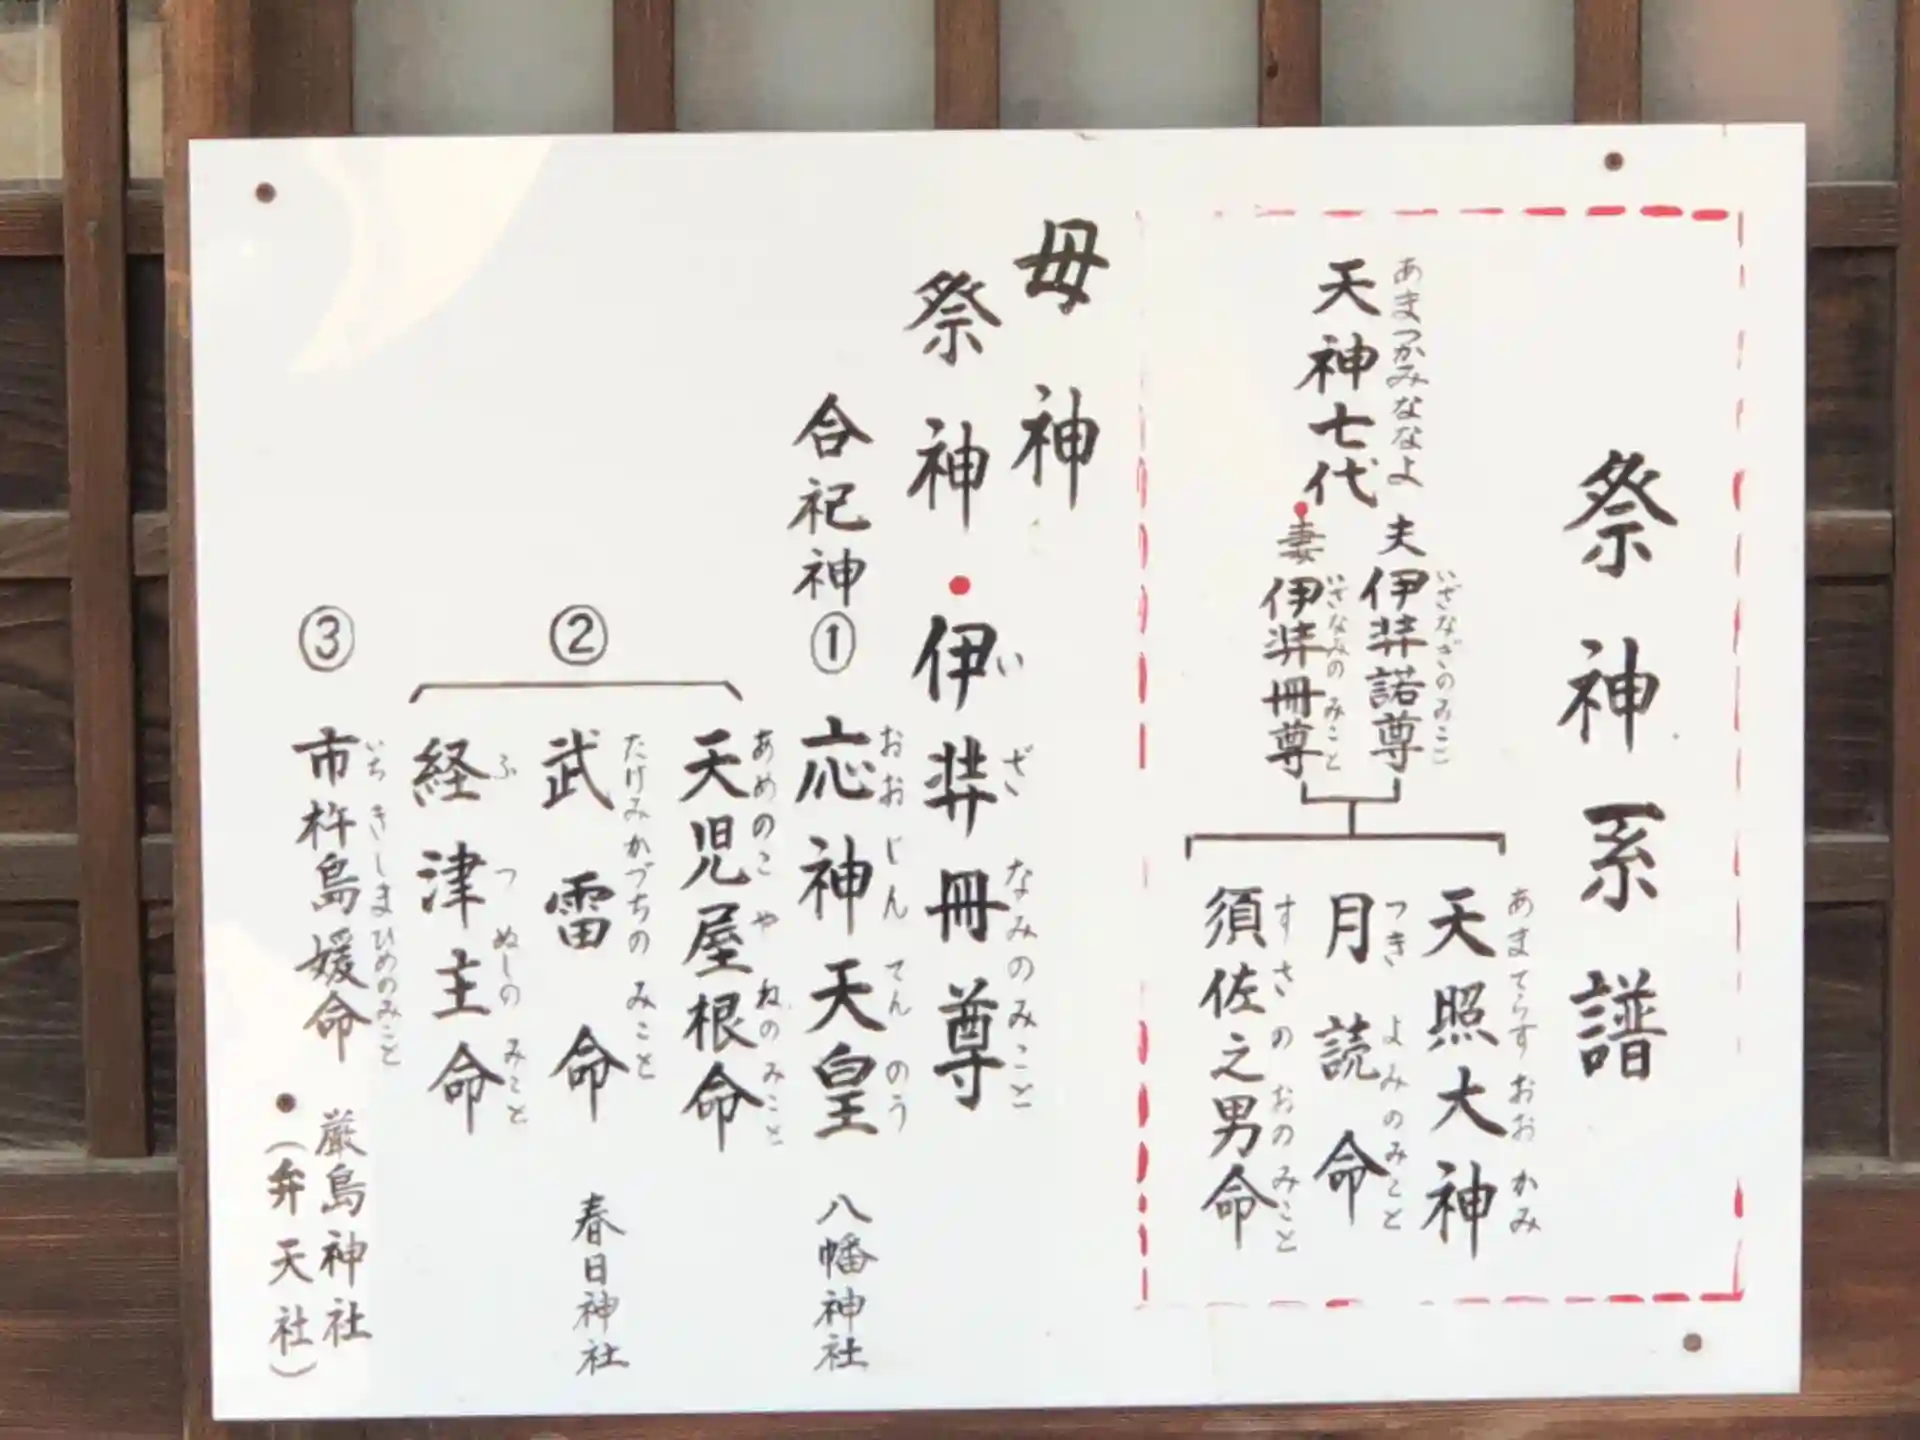 祭神系譜
あまつかみななよ
天神七代
いざなぎのみこと
夫 伊弉諾尊
いざなみの みこと
妻 伊弉冊尊
あまてらすおおかみ
天照大神
つきよみのみこと
月読命
すさのおのみこと
須佐之男命
母神
祭神・伊弉冊尊
いざなみのみこと
合祀神
① 応神天皇 八幡神社
おおじんてんのう
②
あめのこやねのみこと
天児屋根命
たけみかづちの みこと
武雷命 春日神社
ふつぬしの みこと
経津主命
③
いちきしまひめのみこと
市杵島媛命
厳島神社
・(弁天社)